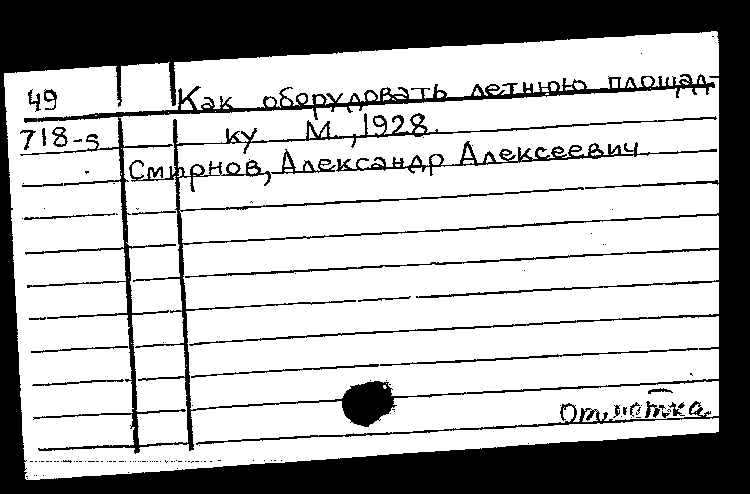 49 Как оборудовать летнюю площад-
718-s ку М., 1928.
Смирнов, Александр Алексеевич
Отметка